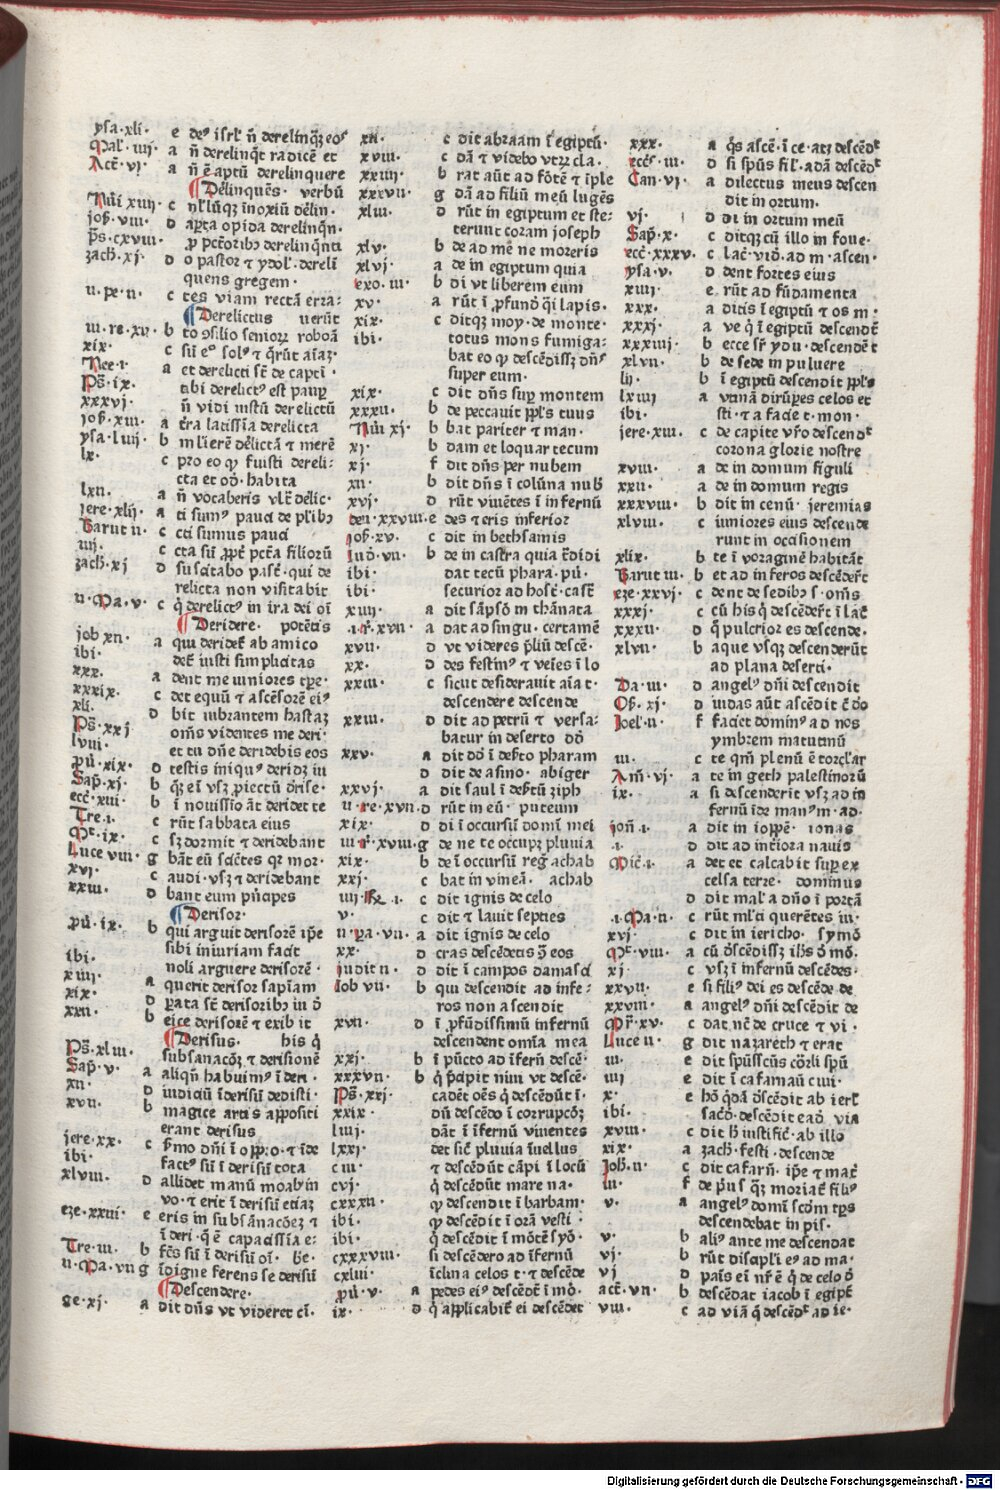 ysa·xli· e de⁹ isrl̄ n̄ derelinq̄ꝫ eos
Mal̄·iiij· a n̄ derelinq̄t radicē et
Act̄·vj· a n̄ ē aptū derelinquere
¶Delinquēs· verbū
Nūi xiiij· c
job̄·viii· d apta opida derelinqn̄·
ps̄·cxviii· ꝓ pctōribꝫ derelinq̄nti
zach̄·xj· d o pastor ⁊ ydol̄·dereli
quens gregem·
ii·pe·ii· c tes viam rectā erra⸗
¶Derelictus uerūt
iii·re·xii· b to ꝯsilio senioꝝ roboā
xix· c sū e⁹ sol⁹ ⁊ q̄rūt aīaꝫ·
Nee·i· a et derelicti sē de capti·
Ps̄·ix· tibi derelict⁹ est paup
xxxvj· n̄ vidi iustū derelictū
job̄·xiii· a terra latissīa derelicta
ysa·liiij· b mlierē delictā ⁊ merē
lx· c pro eo ꝙ fuisti dereli⸗
cta et od̄·habita
lxii· a n̄ vocaberis vlt̄ delic·
jere·xlij· a ti sum⁹ pauci de plībꝫ
Barut ii· c cti sumus pauci
iiij· c cta sū ꝓpt̄ pct̄a filiorū
zach̄·xj d suscitabo past̄·qui de
relicta non visitabit
ii·Ma·v· c q̄ derelict⁹ in ira dei oī
¶Deridere· potētis
job xii· a qui deridet ab amico
ibi· det iusti simplicitas
xxx· a dent me iuniores tpe·
xxxix· c det equū ⁊ ascēsorē ei⁹
xli· d bit vibrantem hastaꝫ
Ps̄·xxj om̄s videntes me deri·
lviii· et tu dn̄e deridebis eos
pū·xix· d testis iniqu⁹ deridꝫ iu
Sap̄·xj· b
ecc̄·xiii· b ī nouissīo āt deridet te
Tre·i· c rūt sabbata eius
Mt̄·ix· c sꝫ dormit ⁊ deridebant
Luce viii· g bāt eū sciētes qr mor·
xvj· c audi·vsꝫ ⁊ deridebant
xxiii· d bant eum prīcipes
¶Derisor·
pū·ix· b qui arguit derisorē ipse
sibi iniuriam facit
ibi· noli arguere derisorē·
xiiij· a querit derisor sapīam
xix· d parata st̄ derisoribꝫ iu d̄
xxii· b eice derisorē ⁊ exibit
¶Derisus· his q̄
Ps̄·xliii· subsanacōꝫ ⁊ derisionē
Sap̄·v· a aliqn̄ habuim⁹ ī deri·
xii· d iudiciū īderisū dedisti·
xvii· b magice artis appositi
erant derisus
jere·xx· c
ibi· fact⁹ sū ī derisū tota
xlviii· d allidet manū moab in
vo·⁊ erit ī derisū etiaꝫ
eze·xxiii· e eris in subsānacōeꝫ ⁊
ī deri·q̄ ē capacissīa e⸗
Tre·iii· b fc̄s sū ī derisū oī·
ii·Ma·vii g īdigne ferens se derisū
¶Descendere·
ge·xj· a dit dn̄s vt videret ci·
xii· c dit abraam ī egiptū·
xviii· c dā ⁊ videbo vtꝝ cla·
xxiiij· b rat aūt ad fōtē ⁊ īple
xxxvii· g dā ad filiū meū lugēs
xliii· d rūt in egiptum et ste⸗
terunt coram joseph
xlv· b de ad me ne moreris
xlvj· a de in egiptum quia
exo·iii· b di vt liberem eum
xv· a rūt ī ꝓfund̄ q̄i lapis·
xix· c ditqꝫ moy·de monte·
ibi· totus mons fumiga⸗
bat eo ꝙ descēdissꝫ dn̄s
super eum·
xix· c dit dn̄s sup montem
xxxii· b de peccauit ppl̄s tuus
Nūi xj· b bat pariter ⁊ man·
xj· b dam et loquar tecum
xj· f dit dn̄s per nubem
xii· b dit dn̄s ī colūna nub̄
xvj· d rūt viuētes ī infernū
deu·xxviii· e des ⁊ eris inferior
jos̄·xv· c dit in bethsamis
Iud̄·vii· b de in castra quia tradidi
ibi· dat tecū phara·pu·
ibi· securior ad host̄·cast̄
xiiij· a dit sāpsō in thānata
·i·r̄·xvii· a dat ad singu·certamē
xvii· d vt videres prēliū descē·
xx· d des festin⁹ ⁊ veies ī lo
xxiii· c sicut desiderauit aīa t·
descendere descende
xxiii· d dit ad petrū ⁊ versa⸗
batur in deserto
xxv· a dit dd̄ ī debto pharam
d dit de asino·abiger
xxvj· a dit saul ī debtū ziph
ii·re·xvii· d rūt in eū·puteum
xix· d di ī occursū domī mei
iii·r̄·xviii· g de ne te occupꝫ pluuia
xix· b de ī occursū reḡ achab
xxj· c bat in vineā·achab
iiij·Re·i· c dit ignis de celo
v· c dit ⁊ lauit septies
ii·pa·vii· a dit ignis de celo
xx· d cras descēdetis
judit ii· d dit ī campos damasci
Iob vii· b qui descendit ad infe⸗
ros non ascendit
xvii· d ī ꝓfūdissimū infernū
descendent om̄ia mea
xxj· b ī pūcto ad īfern̄ descē·
xxxvii· b q̄ pcipit niui vt descē·
Ps̄·xxj· cadēt oēs q̄ descēdūt ī·
xxix· dū descēdo ī corrupcōꝫ
liiij· dāt ī īfernū viuentes
lxxj· det sic̄ pluuia ī vellus
ciii· ⁊ descēdūt cāpi ī locū
cvj· q̄ descēdūt mare na·
cxxxii· ꝙ descendit ī barbam·
ibi· ꝙ descēdit ī orā vesti·
ibi· q̄ descēdit ī mōtē syō·
cxxxviii· si descēdero ad īfernū
cxliii· īclina celos t·⁊ descēde
pū·v· a pedes ei⁹ descēdt̄ ī mō·
ix· d q̄ applicabit̄ ei descēdet
xxx· a q̄s ascē·ī ce·atꝫ descēdt
eccs̄·iii· d si spūs fil̄·adā descēdt
Can·vj· a dilectus meus descen
dit in ortum·
vj· d di in ortum meū
Sap̄·x· c ditqꝫ cū illo in foue·
ecc̄·xxxv· c lac̄·vid̄·ad m·ascen·
ysa·v· d dent fortes eius
xiiij· e rūt ad fūdamenta
xxx· a ditis ī egiptū ⁊ os m·
xxxj· a ve q̄ ī egiptū descendūt
xxxiiij· b ecce sr̄ ydu·descendēt
xlvii· b de sede in puluere
lij· b ī egiptū descendit ppl̄s
lxiiij a vtinā dirūpes celos et
ibi· sti·⁊ a facie t·mon·
jere·xiii· c de capite vr̄o descendt
corona glorie nostre
xviii· a de in domum figuli
xxii· a de in domum regis
xxxviii· b dit in cenū·jeremias
xlviii· c iuniores eius descende
runt in occisionem
xlix· b te ī voragine habitāt
Barut iii· b et ad inferos descēdert̄
eze·xxvj· c dent de sedibꝫ s·om̄s
xxxj· c cū his q̄ descēdert̄ ī lac̄
xxxii· d q̄ pulcrior es descende·
xlvii· b aque vsqꝫ descenderūt
ad plana deserti·
Da·iii· d angel⁹ dn̄i descendit
Ob̄·xj· d iudas aūt ascēdit
Joel·ii· f faciet domin⁹ ad nos
ymbrem matutinū
iii· c te qm̄ plenū ē torcl̄ar
Am̄·vj· a te in geth palestinorū
ix· a si descenderit vsꝫ ad in
fernū īde man⁹ m·ad·
jon̄·i· a dit in iopp̄e·ionas
·i· d dit ad īteriora nauis
Mic̄·i· a det et calcabit sup ex
celsa terre·dominus
d dit mal̄a a dn̄o ī portā
·i·Ma·ii· c rūt ml̄ti querētes iu·
xvj· c dit in iericho·symō
Mt̄·viii· a cū descēdissꝫ ih̄s d̄ mō·
xj· c vsꝫ ī infernū descēdes·
xxvii· e si fili⁹ dei es descēde de
xxviii· a angel⁹ dn̄i descēdit de
Mr̄·xv· c dat nc̄ de cruce ⁊ vi·
Luce ii· g dit nazareth ⁊ erat
iii· e dit spūsscūs corꝑli spē
iiij e dit ī cafarnaū ciui·
x· e hō q̄dā descēdit ab ierl̄
ibi· sacd̄·descēdit eadē via
xviii· c dit h̄ iustific̄·ab illo
xix· a zach̄·festi·descende
Joh̄·ii· c dit cafarn̄·ipse ⁊ mat̄
iii· f de prīus q̄ꝫ moriat̄ fili⁹
v· a angel⁹ domī scdm tps
descendebat in pis·
v· b ali⁹ ante me descendit
vj· b rūt discipli e⁹ ad ma·
vj d panis eī nr̄ ē q̄ de celo d̄
act̄·vii· b descēdit iacob ī egipt̄
viii· c ad viā q̄ descēdt̄ ad ie·
Digitalisierung gefördert durch die Deutsche Forschungsgemeinschaft · DFG